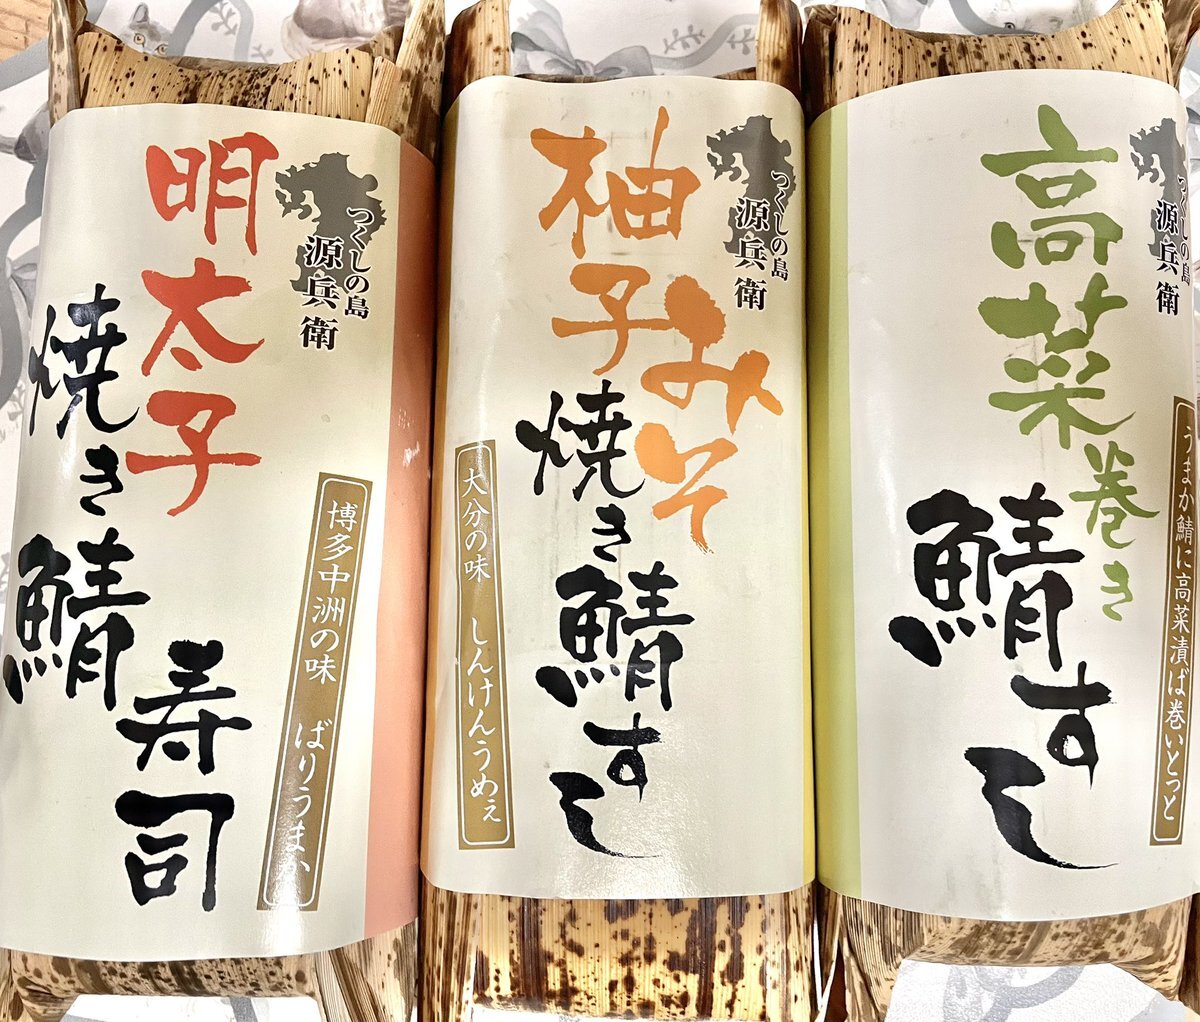 明太子
焼き鯖寿司
つくしの島
源兵衛
博多中洲の味 ばりうまか
柚子みそ
焼き鯖すし
つくしの島
源兵衛
大分の味 しんけんうめぇ
高菜巻き
鯖すし
つくしの島
源兵衛
うまか鯖に高菜漬ば巻いとっと